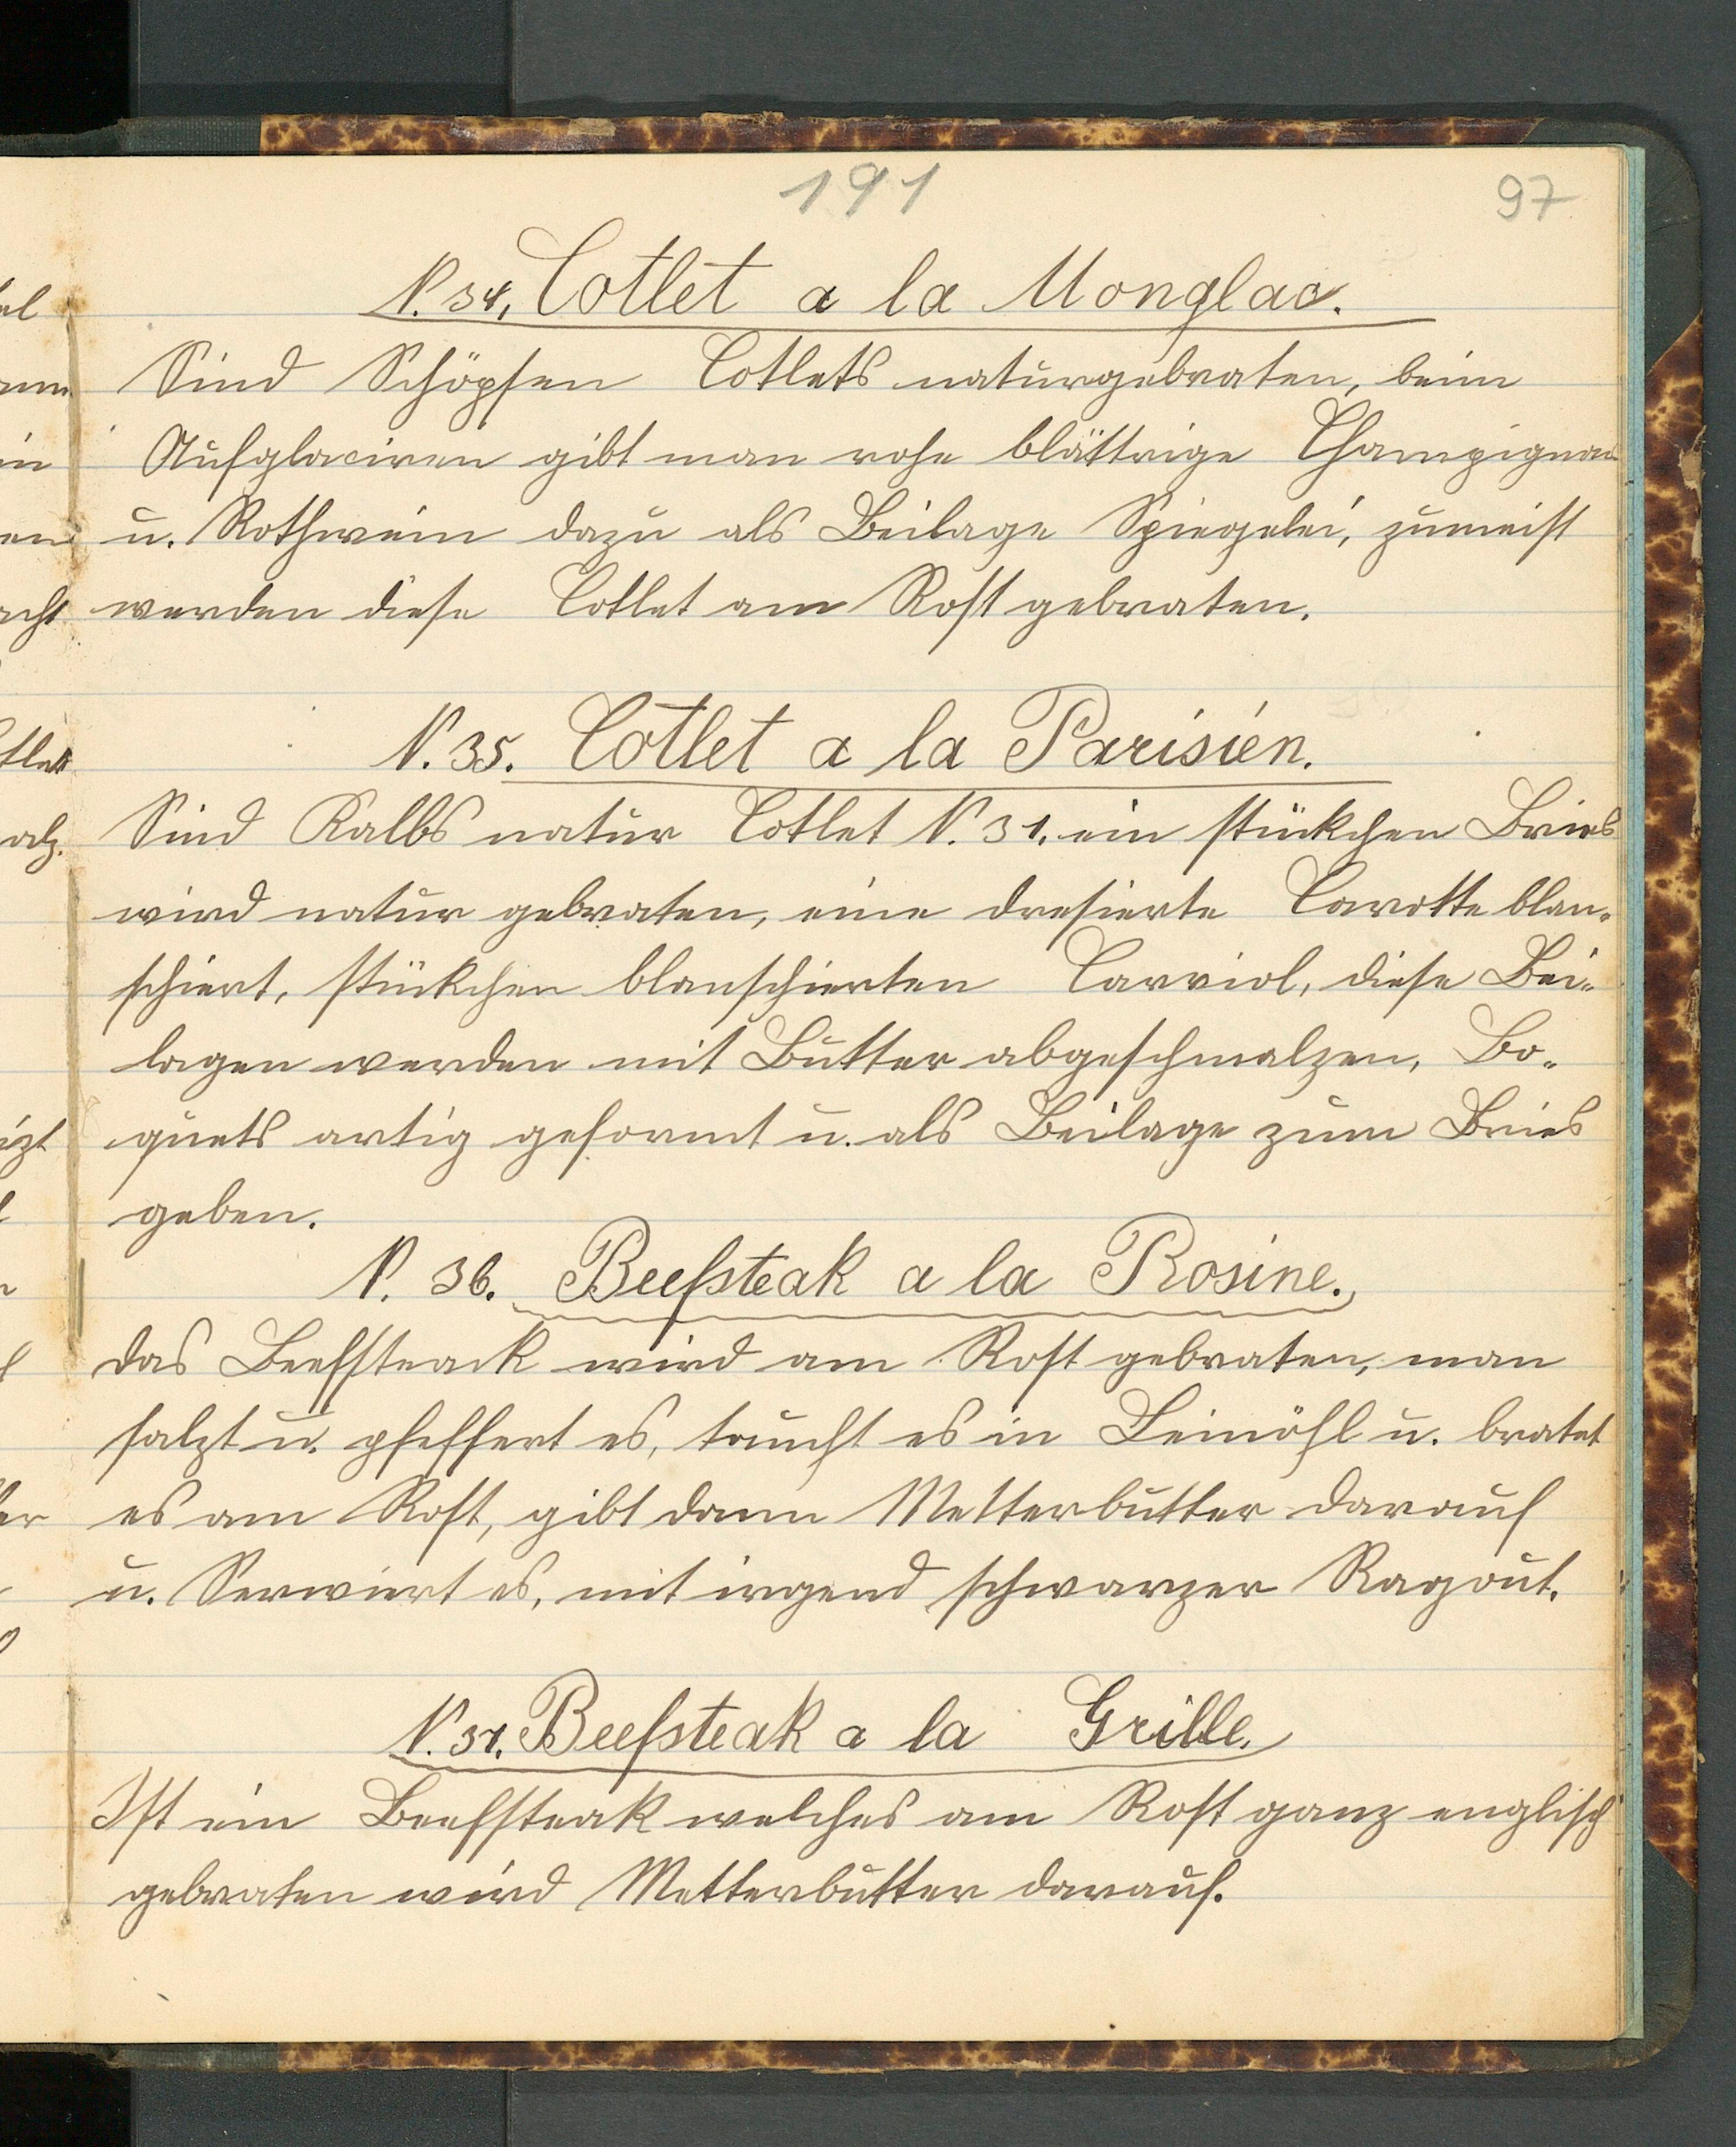 191
97
N. 34, Cotlet a la Monglac.
Sind Schöpsen Cotlets naturgebraten, beim
Aufglaciren gibt man rohe blättrige Champignon
u. Rothwein dazu als Beilage Spiegelei, zumeist
werden diese Cotlet am Rost gebraten.
N. 35. Cotlet a la Parisien.
Sind Kalbs natur Cotlet N. 31. ein stükchen Bries
wird natur gebraten, eine dresierte Carotte blan-
schiert, stükchen blanschierten Carviol, diese Bei-
lagen werden mit Butter abgeschmalzen, Bo-
quets artig geformt u. als Beilage zum Bries
geben.
N. 36. Beefsteak a la Rosine.
das Beefsteack wird am Rost gebraten, man
salzt u. pfeffert es, taucht es in Leinöhl u. bratet
es am Rost, gibt dann Metterbutter darauf
u. Serwiert es, mit irgend schwarzer Ragout.
N. 37. Beefsteak a la Grille.
Ist ein Beefsteak welches am Rost ganz englisch
gebraten wird Metterbutter darauf.